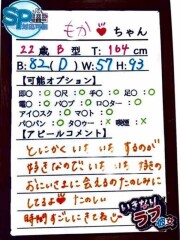 SP
もか♥ちゃん
22歳 B型 T:164cm
B:82(D) W:57 H:93
【可能オプション】
即○:○ ○尺:○ 手○:○ 足○:○
電○:○ バ○ブ:○ ロ○ター:○
アイ○スク:○ ○スト:○
パ○パン:× タ○ゥー:× 喫煙:×
【アピールコメント】
とにかくいちゃいちゃするのが
好きなのでいちゃいちゃ好きの
おにいさまに会えるのたのしみに
してるよ♥ たのしい
時間すごしにきてねっ
いきなり
ラブ